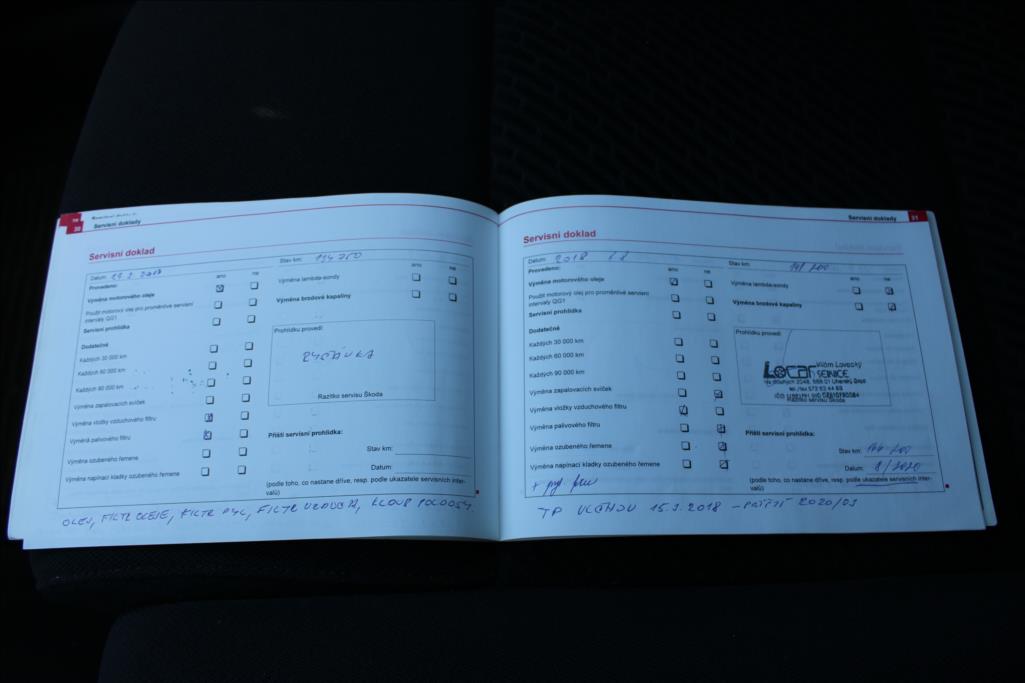 30
Servisní doklady
Servisní doklad
Datum:
Stav km:
ano
ne
Provedeno:
Výměna motorového oleje
Použit motorový olej pro proměnlivé servisní
intervaly QG1
Servisní prohlídka
Dodatečně
Každých 30 000 km
Každých 60 000 km
Každých 90 000 km
Výměna zapalovacích svíček
Výměna vložky vzduchového filtru
Výměna palivového filtru
Výměna ozubeného řemene
Výměna napínací kladky ozubeného řemene
ano
ne
Výměna lambda-sondy
Výměna brzdové kapaliny
Prohlídku provedl:
Razítko servisu Škoda
Příští servisní prohlídka:
Stav km:
Datum:
(podle toho, co nastane dříve, resp. podle ukazatele servisních inter-
valů)
OLEJ, FILTR OLEJE, FILTR PYL, FILTR VZDUCH, KLOUB POLOOSY.
Servisní doklady
31
Servisní doklad
Datum: 2018
Stav km:
ano
ne
Provedeno:
Výměna motorového oleje
Použit motorový olej pro proměnlivé servisní
intervaly QG1
Servisní prohlídka
Dodatečně
Každých 30 000 km
Každých 60 000 km
Každých 90 000 km
Výměna zapalovacích svíček
Výměna vložky vzduchového filtru
Výměna palivového filtru
Výměna ozubeného řemene
Výměna napínací kladky ozubeného řemene
ano
ne
Výměna lambda-sondy
Výměna brzdové kapaliny
Prohlídku provedl:
Locar Vilém Lovecký
SERVICE
Razítko servisu Škoda
Příští servisní prohlídka:
Stav km:
Datum: 8/2020
(podle toho, co nastane dříve, resp. podle ukazatele servisních inter-
valů)
15.3.2018 – PŘÍŠTÍ 2020/03